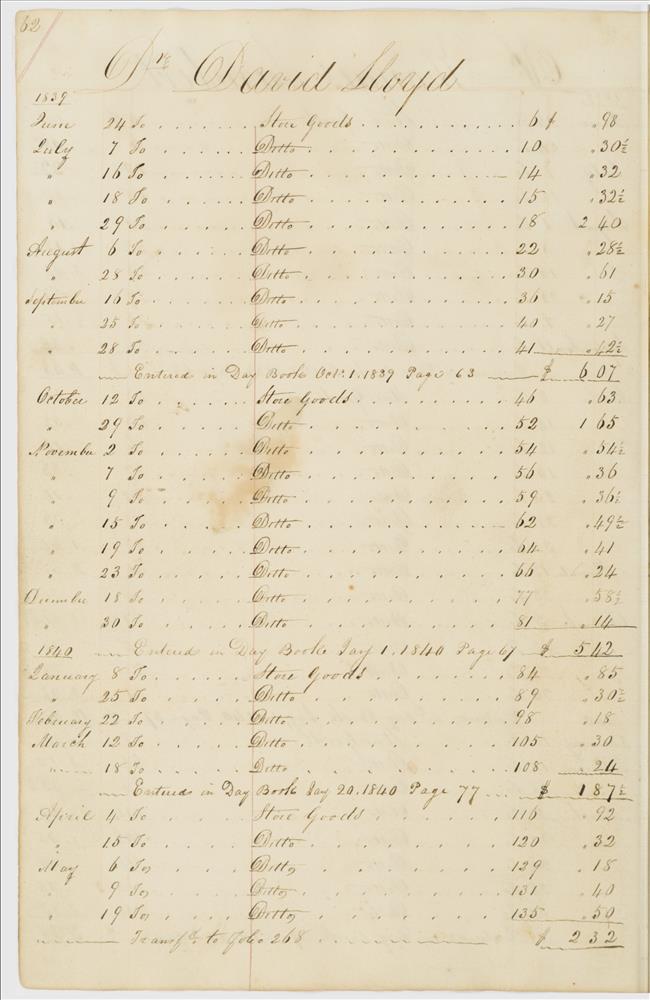 62
Dr. David Lloyd
1839
June 24 To . . . . . . Store Goods . . . . . . . . . . . 6 $ .98
July 7 To . . . . . . Ditto . . . . . . . . . . . 10 .30½
" 16 To . . . . . . Ditto . . . . . . . . . . . 14 .32
" 18 To . . . . . . Ditto . . . . . . . . . . . 15 .32½
" 29 To . . . . . . Ditto . . . . . . . . . . . 18 2 40
August 6 To . . . . . . Ditto . . . . . . . . . . . 22 .28½
" 28 To . . . . . . Ditto . . . . . . . . . . . 30 .61
September 16 To . . . . . . Ditto . . . . . . . . . . . 36 .15
" 25 To . . . . . . Ditto . . . . . . . . . . . 40 .27
" 28 To . . . . . . Ditto . . . . . . . . . . . 41 .42½
Entered in Day Book Octr. 1. 1839 Page 63 $ 6 07
October 12 To . . . . . . Store Goods . . . . . . . . . . . 46 .63
" 29 To . . . . . . Ditto . . . . . . . . . . . 52 1 65
November 2 To . . . . . . Ditto . . . . . . . . . . . 54 .54½
" 7 To . . . . . . Ditto . . . . . . . . . . . 56 .36
" 9 To . . . . . . Ditto . . . . . . . . . . . 59 .36½
" 15 To . . . . . . Ditto . . . . . . . . . . . 62 .49½
" 19 To . . . . . . Ditto . . . . . . . . . . . 64 .41
" 23 To . . . . . . Ditto . . . . . . . . . . . 66 .24
December 18 To . . . . . . Ditto . . . . . . . . . . . 77 .58½
" 30 To . . . . . . Ditto . . . . . . . . . . . 81 .14
1840 Entered in Day Book Jay 1. 1840 Page 67 $ 5 42
January 8 To . . . . . . Store Goods . . . . . . . . . . . 84 .85
" 25 To . . . . . . Ditto . . . . . . . . . . . 89 .30½
February 22 To . . . . . . Ditto . . . . . . . . . . . 98 .18
March 12 To . . . . . . Ditto . . . . . . . . . . . 105 .30
" 18 To . . . . . . Ditto . . . . . . . . . . . 108 .24
Entered in Day Book Jay 20. 1840 Page 77 $ 1 87½
April 4 To . . . . . . Store Goods . . . . . . . . . . . 116 .92
" 15 To . . . . . . Ditto . . . . . . . . . . . 120 .32
May 6 To . . . . . . Ditto . . . . . . . . . . . 129 .18
" 9 To . . . . . . Ditto . . . . . . . . . . . 131 .40
" 19 To . . . . . . Ditto . . . . . . . . . . . 135 .50
Transfd. to folio 268 $ 2 32